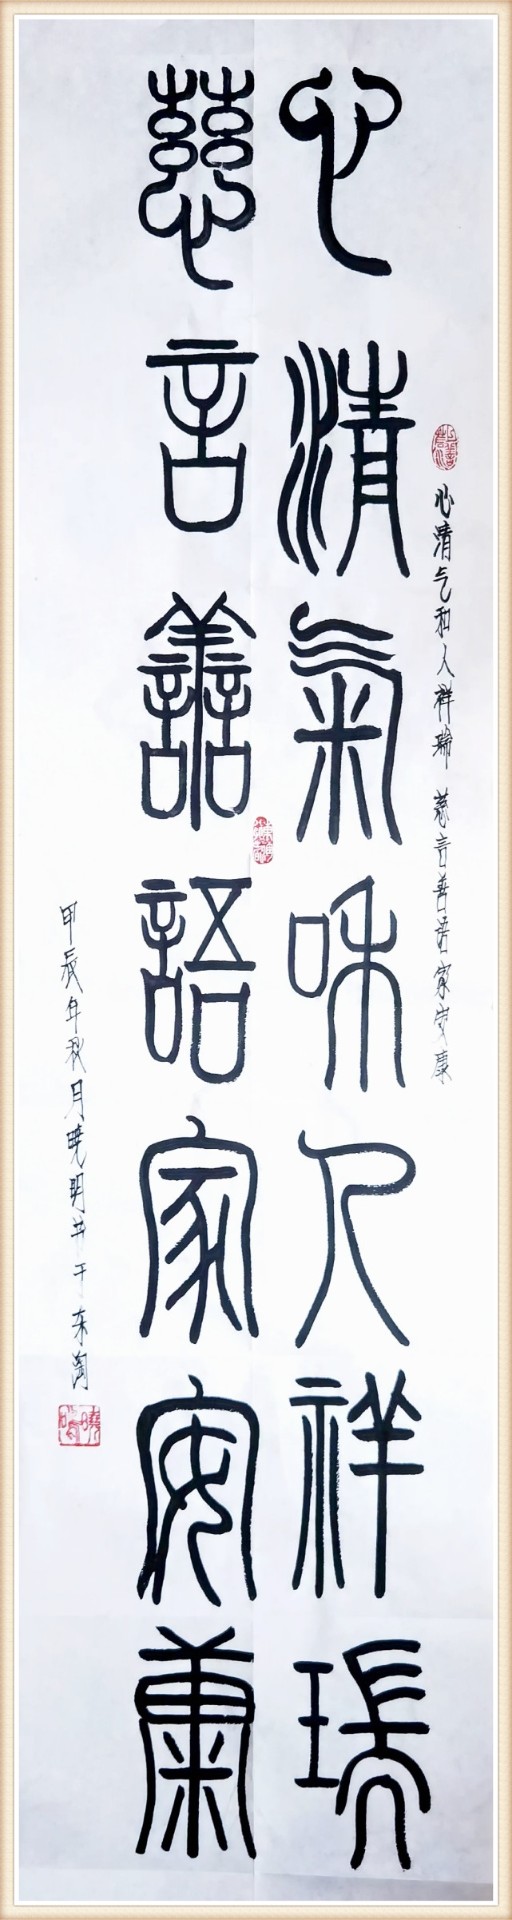 心清氣和人祥瑞
慈言譱語家安康
心清气和人祥瑞 慈言善语家安康
甲辰年秋月晓明书于东淘